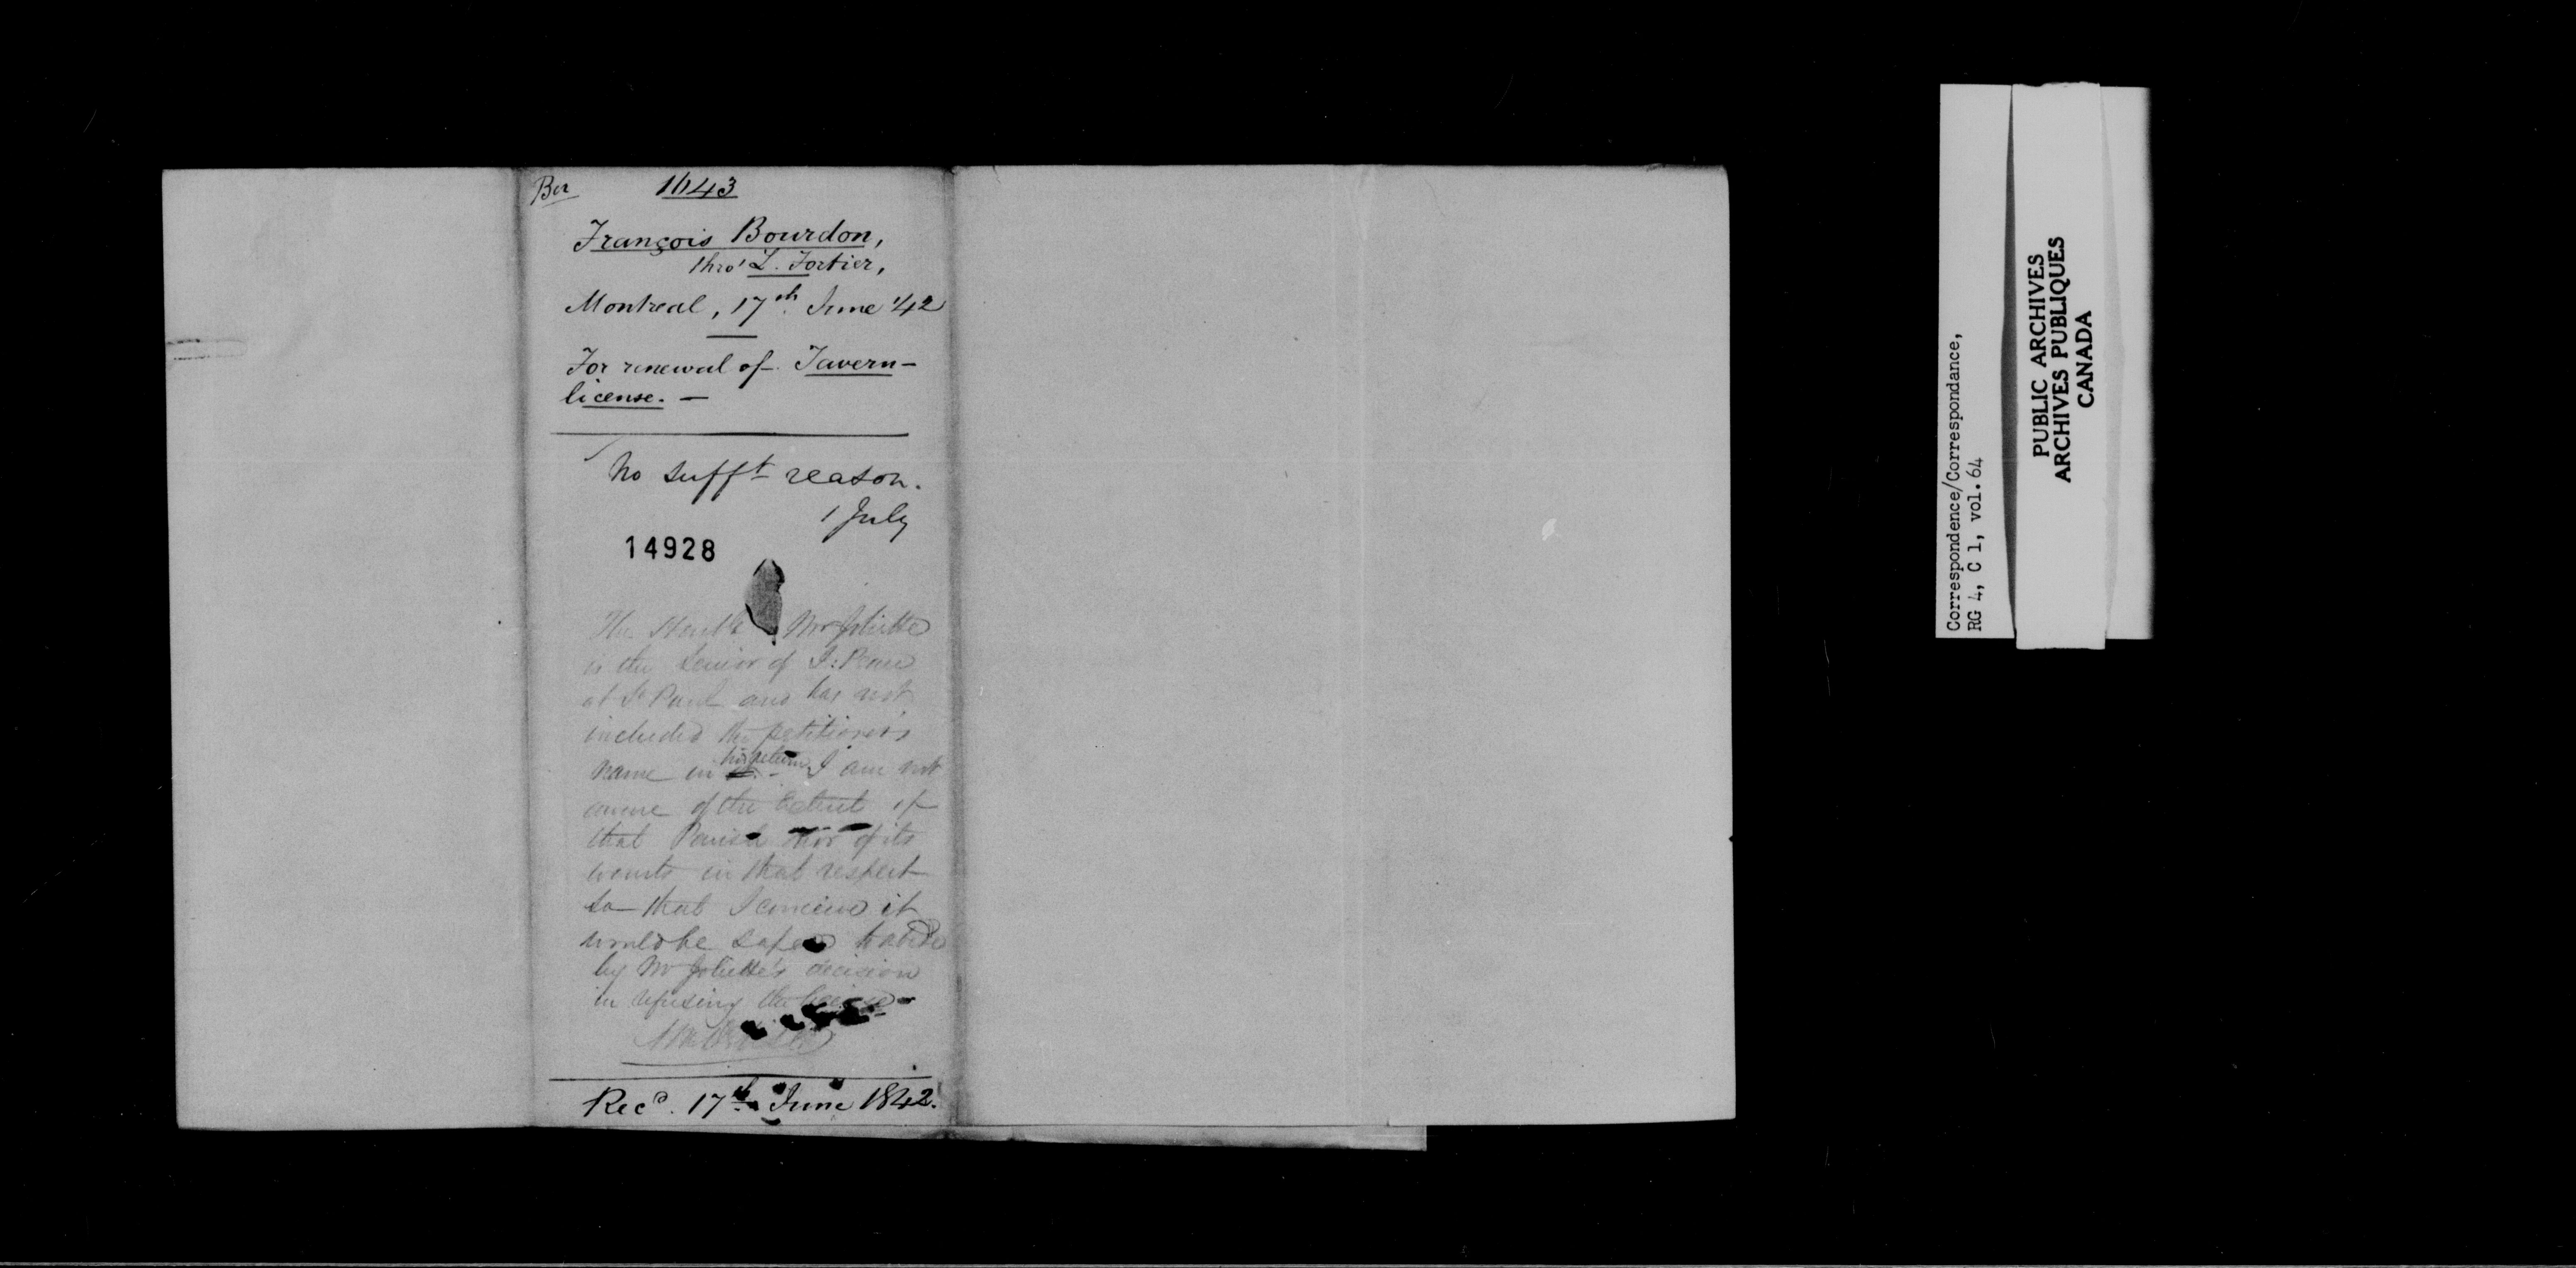 Ber
1643
François Bourdon,
thro' L. Fortier,
Montreal, 17th. June '42
For renewal of Tavern-
license. —
No sufft reason.
1 July
14928
The Honble Mr Joliette
is the Senior J: Peace
at St Paul and has not
included the petitioner's
name in his return I am not
aware of the Extent of
that Parish nor of its
wants in that respect
so that I conceive it
would be safe to abide
by Mr Joliette's decision
in refusing the license
Recd. 17th June 1842.
Correspondence/Correspondance,
RG 4, C 1, vol. 64
PUBLIC ARCHIVES
ARCHIVES PUBLIQUES
CANADA